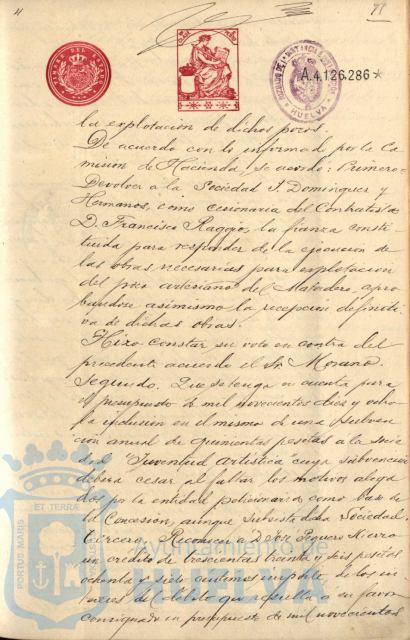 A.4.126.286*
HUELVA
la explotación de dichos pozos.
De acuerdo con lo informado por la Co
misión de Hacienda, se acordó: Primero=
Devolver a la Sociedad J. Dominguez y
Hermanos, como cesionaria del Contratista
D. Francisco Raggio, la fianza consti-
tuida para responder de la ejecución de
las obras necesarias para explotación
del pozo artesiano del Matadero, apro
bándose asimismo la recepción definiti-
va de dichas obras.
Hizo constar su voto en contra del
precedente acuerdo el Sr. Moreno.
Segundo. Que se tenga en cuenta para
el presupuesto de mil novecientos diez y ocho
la inclusión en el mismo de una subven
ción anual de quinientas pesetas a la socie
dad "Juventud Artística cuya subvención
deberá cesar al faltar los motivos alega
dos por la entidad peticionaria como base de
la concesión, aunque subsista dicha Sociedad.
Tercero. Reconocer a D. José Poquero
un crédito de trescientas treinta y seis pesetas
ochenta y siete centimos importe de los in
tereses del débito que resulta a su favor
consignado en presupuesto de mil novecientos
PORTUS MARIS
ET TERRAE
Ayuntamiento de